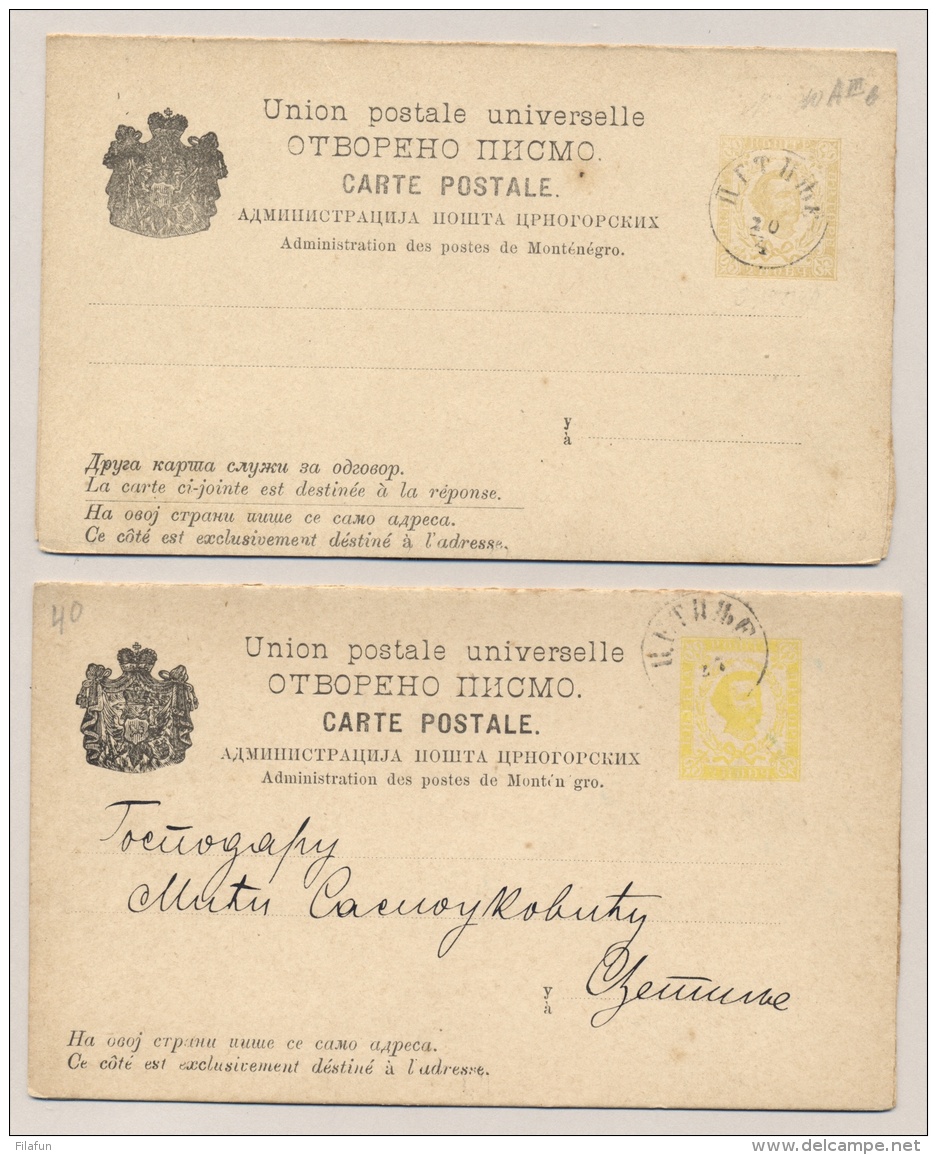 Union postale universelle
ОТВОРЕНО ПИСМО.
CARTE POSTALE.
АДМИНИСТРАЦИЈА ПОШТА ЦРНОГОРСКИХ
Administration des postes de Monténégro.
ЦЕТИЊЕ
20
у
à
Друга карта служи за одговор.
La carte ci-jointe est destinée à la réponse.
На овој страни пише се само адреса.
Ce côté est exclusivement déstiné à l'adresse.
40
Union postale universelle
ОТВОРЕНО ПИСМО.
CARTE POSTALE.
АДМИНИСТРАЦИЈА ПОШТА ЦРНОГОРСКИХ
Administration des postes de Montén gro.
ЦЕТИЊЕ
Господару
Мићи
у Цетиње
à
На овој страни пише се само адреса.
Ce côté est exclusivement déstiné à l'adresse.
Filafun
www.delcampe.net